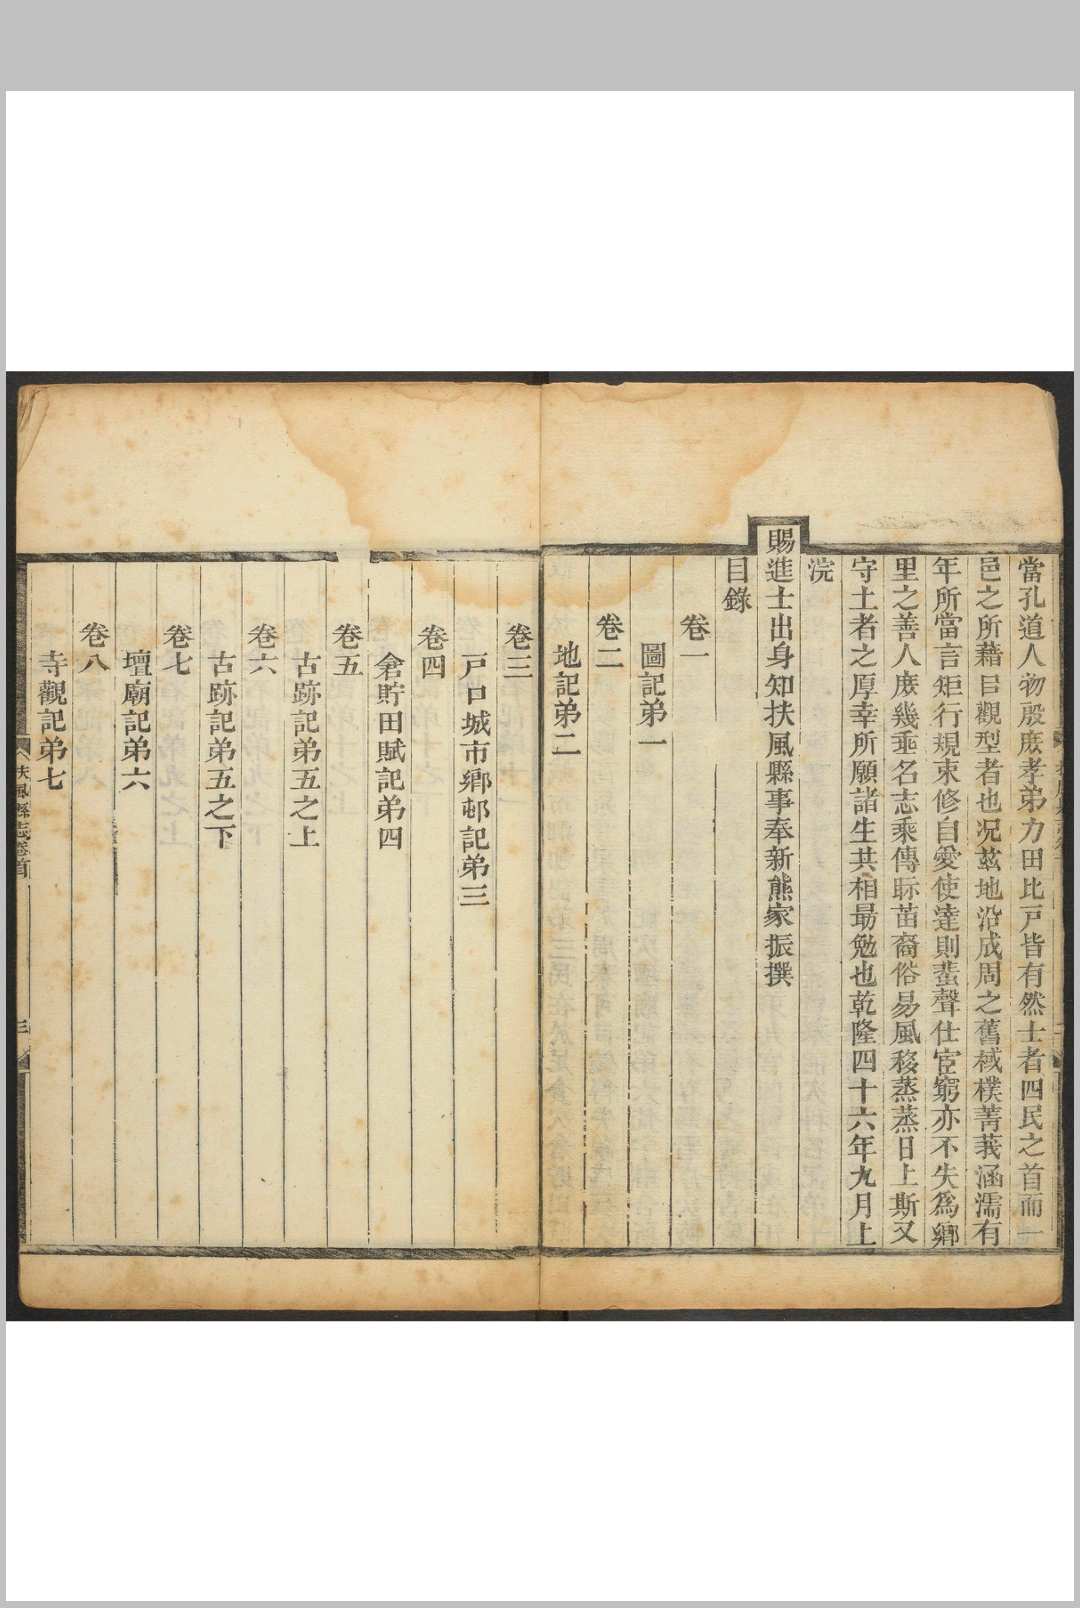 當孔道人物殷庶孝弟力田比戸皆有然士者四民之首而一
邑之所藉㠯觀型者也况茲地沿成周之舊棫樸菁莪涵濡有
年所當言矩行規束修自愛使達則蜚聲仕宦窮亦不失爲鄉
里之善人庶幾垂名志乘傳眎苗裔俗易風移蒸蒸日上斯又
守土者之厚幸所願諸生共相最勉也乾隆四十六年九月上
浣
賜進士出身知扶風縣事奉新熊家振撰
目錄
卷一
圖記弟一
卷二
地記弟二
卷三
戸口城市鄉邨記弟三
卷四
倉貯田賦記弟四
卷五
古跡記弟五之上
卷六
古跡記弟五之下
卷七
壇廟記弟六
卷八
寺觀記弟七
扶風縣志卷首
三